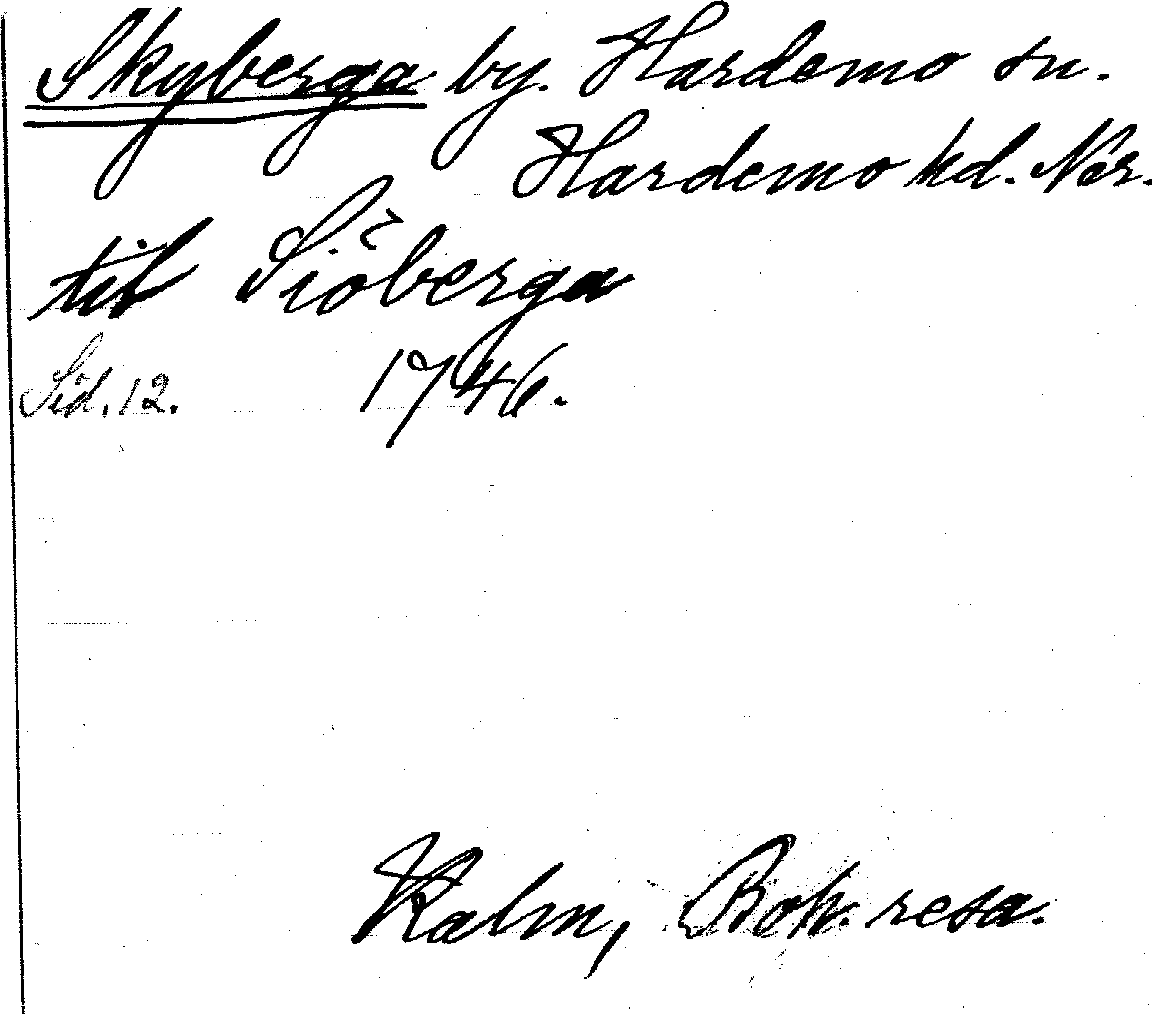 Skyberga by. Hardemo sn.
Hardemo hd. När.
til Siöberga
Sid. 12. 1746.
Kalm, Boh. resa.